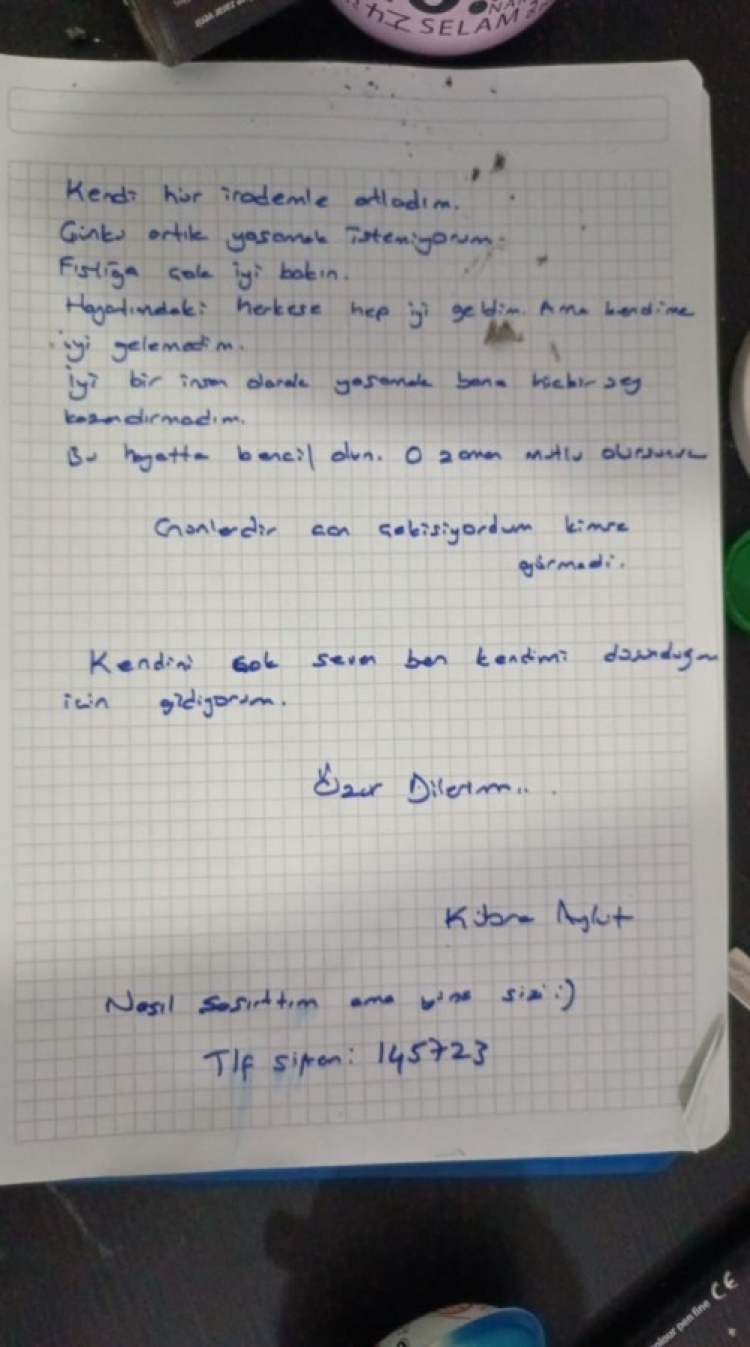 SELAM
Kendi hür irademle atladım.
Çünkü artık yaşamak istemiyorum.
Fıstığa çok iyi bakın.
Hayatımdaki herkese hep iyi geldim. Ama kendime
iyi gelemedim.
İyi bir insan olarak yaşamak bana hiçbir şey
kazandırmadım.
Bu hayatta bencil olun. O zaman mutlu olursunuz
Günlerdir can çekişiyordum kimse
görmedi.
Kendini çok seven ben kendimi düşündüğüm
için gidiyorum.
Özür Dilerim...
Kübra Aykut
Nasıl şaşırttım ama yine sizi :)
Tlf şifrem: 145723
colour pen fine CE